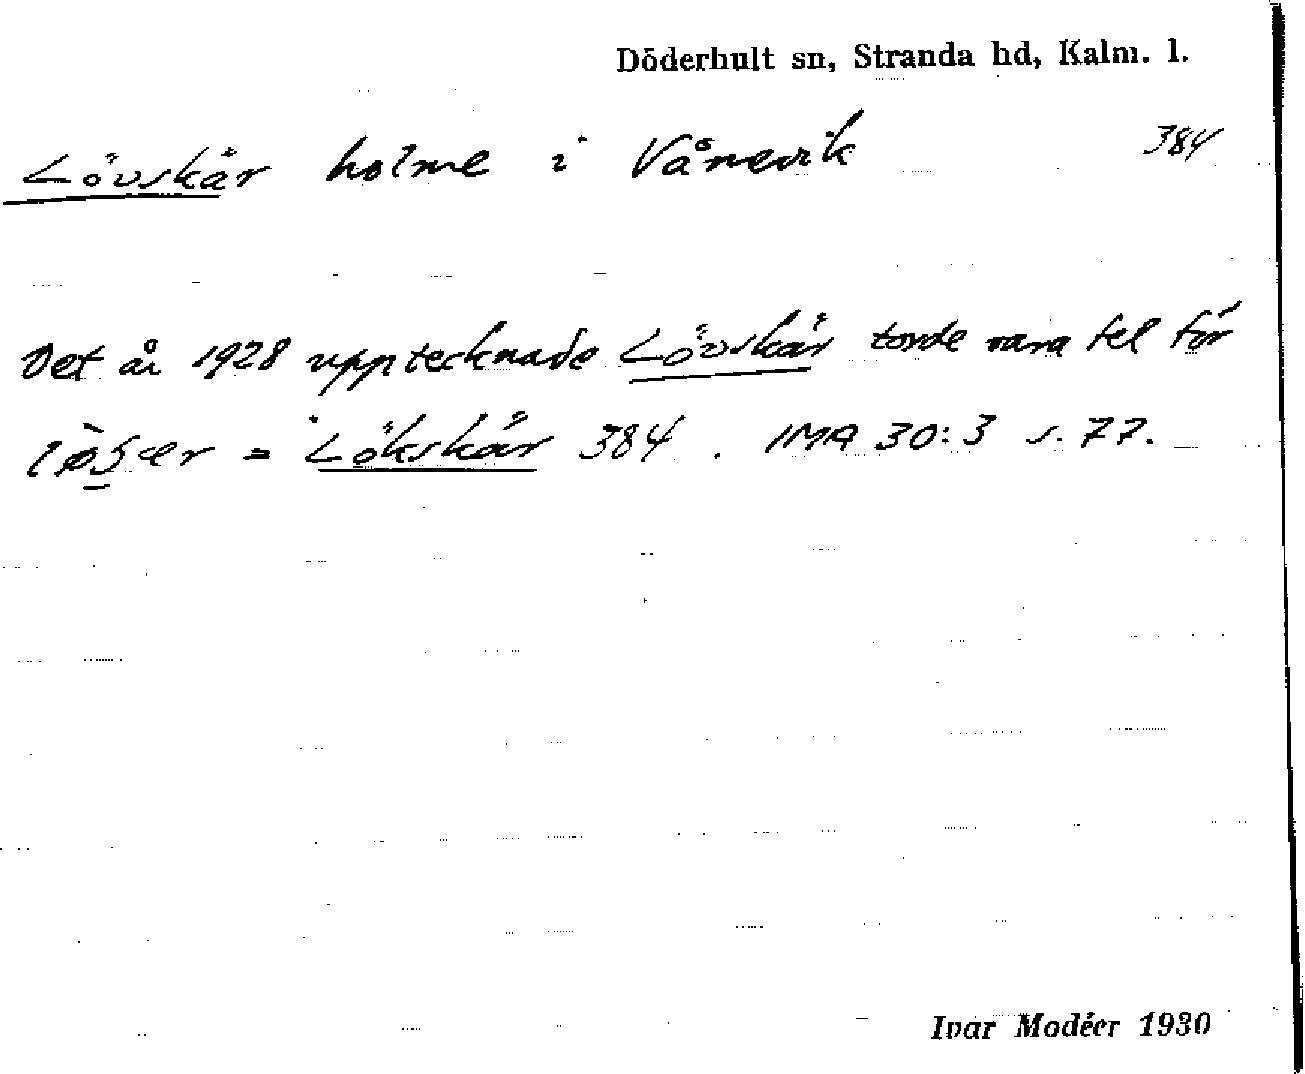 Döderhult sn, Stranda hd, Kalm. l.
Lövskär holme i Vånevik 384
Det år 1928 upptecknade Lövskär torde vara fel för
= Lökskär 384. IMA 30:3 s. 77.
Ivar Modéer 1930